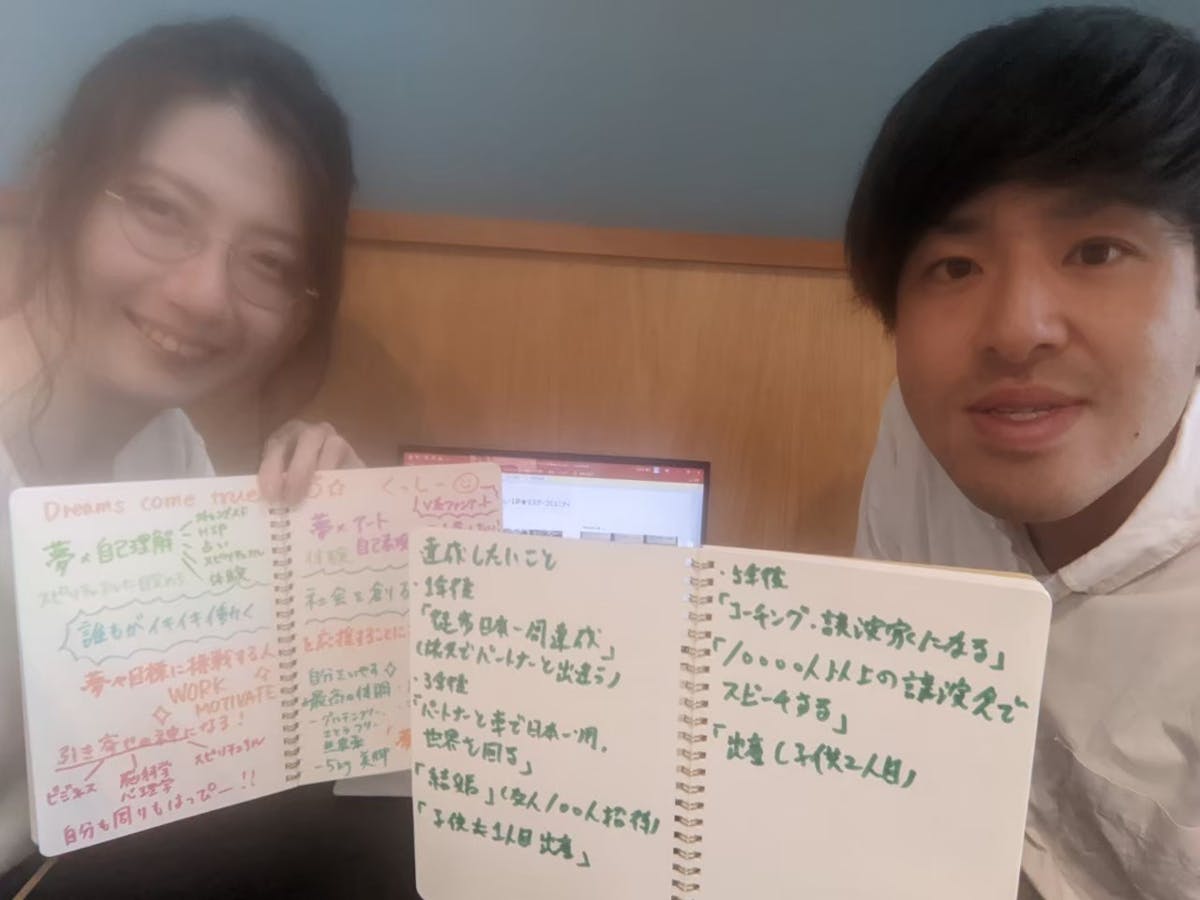 Dreams come true
夢×自己理解
HSP
占い
スピリチュアル
体験
誰もがイキイキ働く
夢や目標に挑戦する人
WORK
MOTIVATE
引き寄せの神になる!
スピリチュアル
ビジネス
脳科学
心理学
自分も周りもはっぴー!!
くっしー
V系ファンアート
夢×アート
体験
自己表現
社会を創る
を応援することに
自分をいやす
最高の体調
-グルテンフリー
-5kg 美脚
達成したいこと
・1年後
「徒歩日本一周達成」
(旅先でパートナーと出逢う)
・3年後
「パートナーと車で日本一周、
世界を回る」
「結婚」(友人100人招待)
「子供1人目出産」
・5年後
「コーチング・講演家になる」
「10000人以上の講演会で
スピーチする」
「出産し子供2人目」